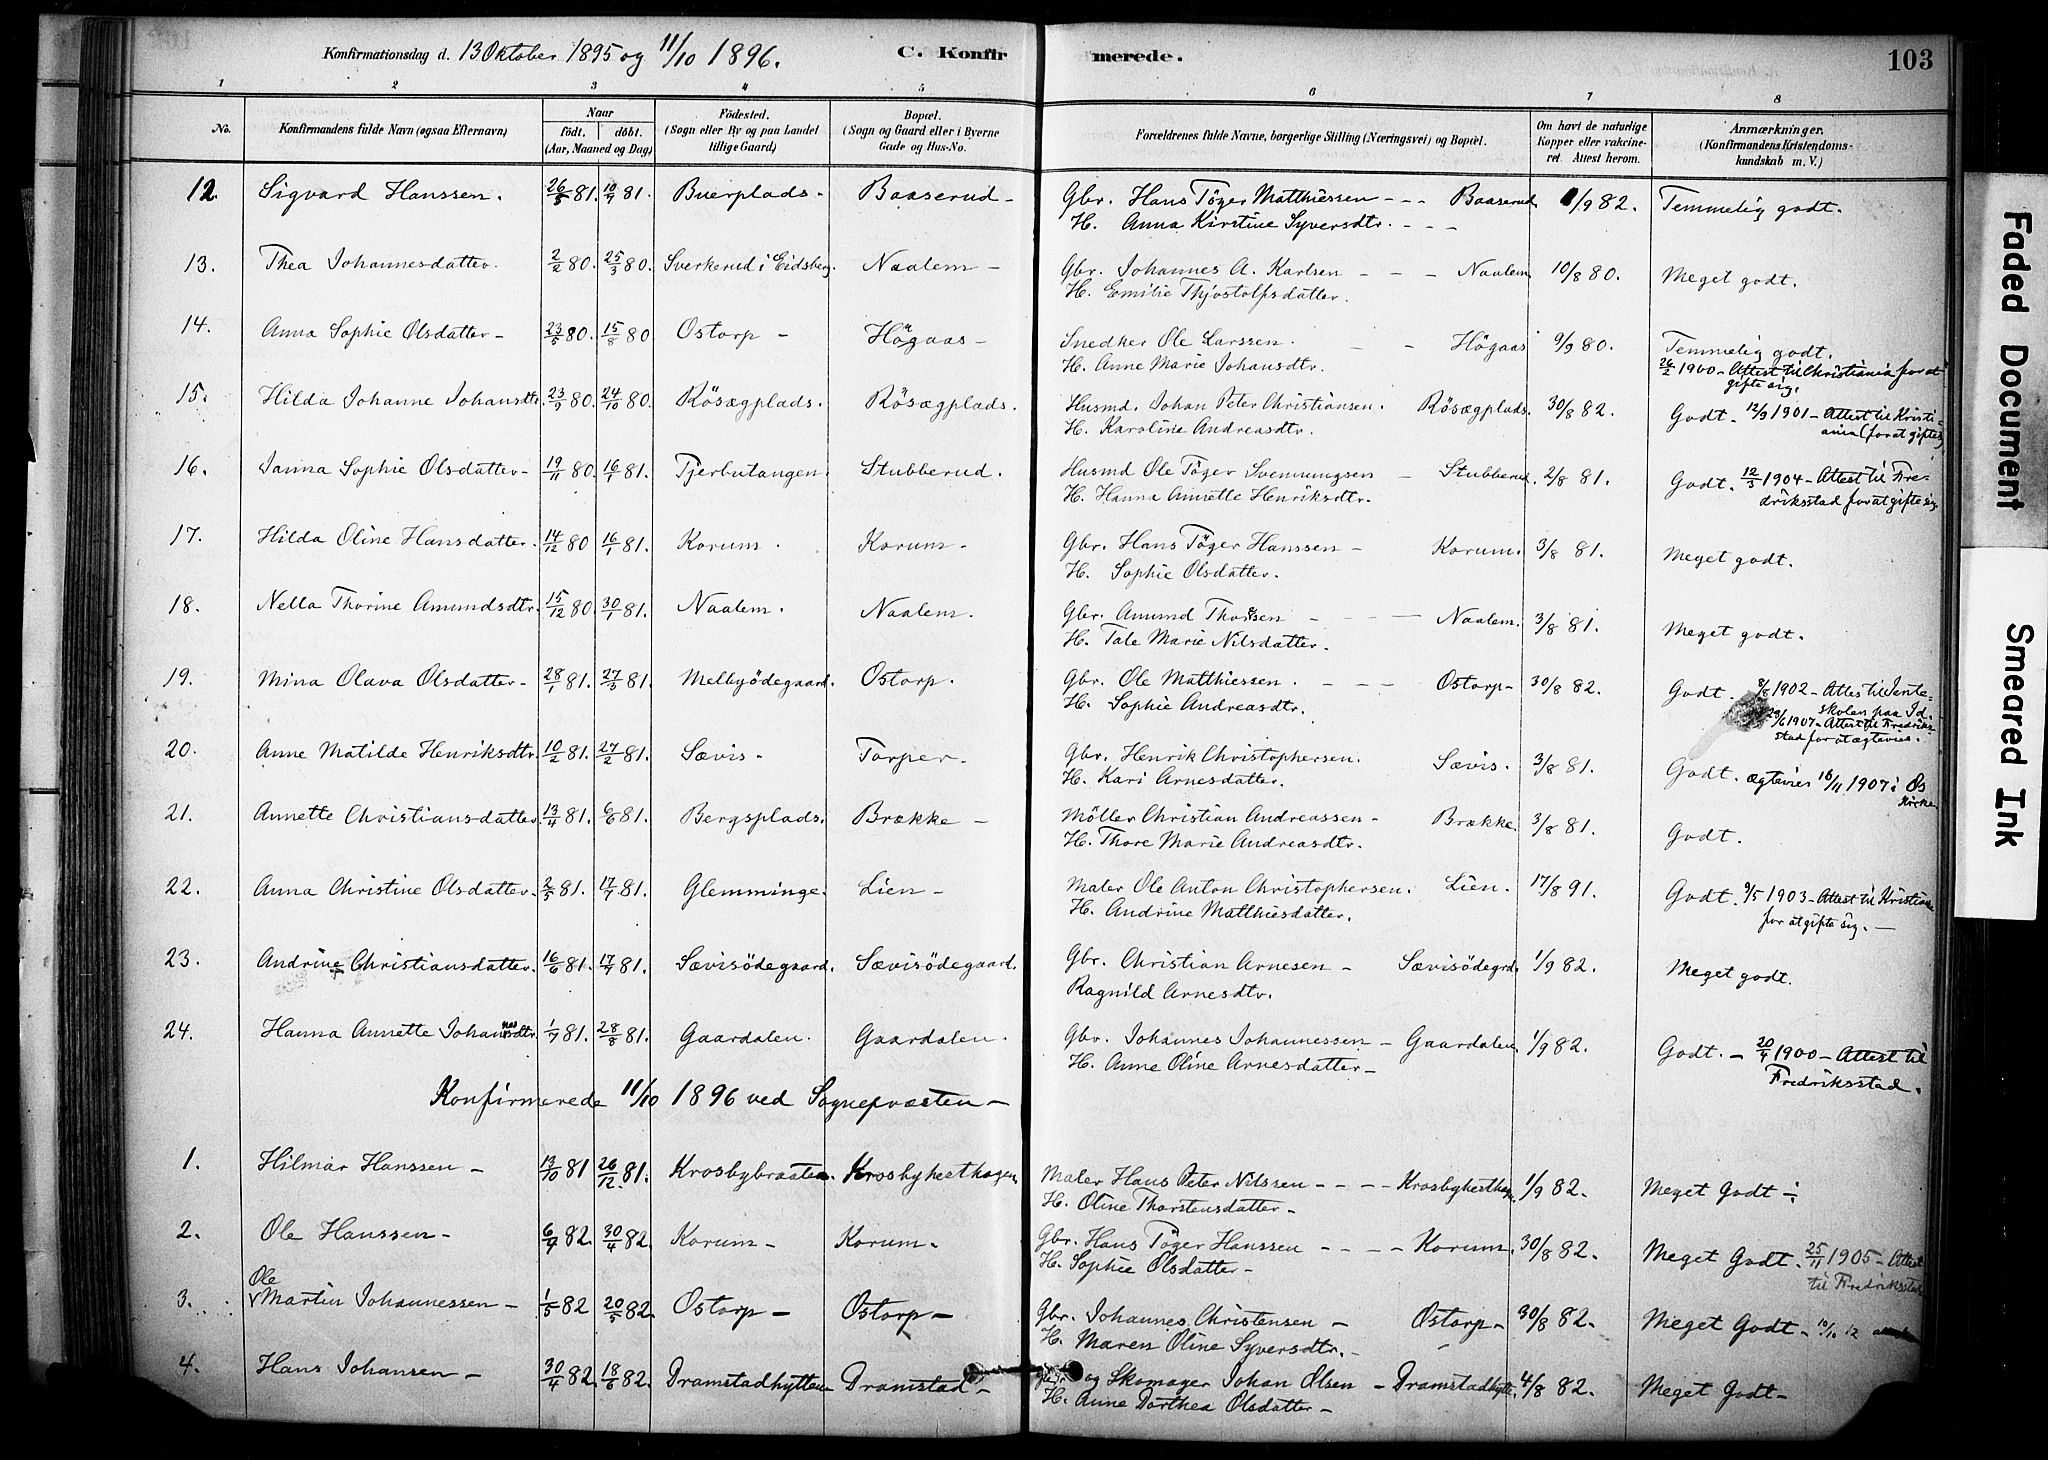 Konfirmationsdag d. 13 Oktober 1895 og 11/10 1896. C. Konfirmerede. 103
1 2 3 4 5 6 7 8
No. Konfirmandens fulde Navn (ogsaa Efternavn) Naar födt. döbt. (Aar, Maaned og Dag) Födested. (Sogn eller By og paa Landet tillige Gaard) Bopæl. (Sogn og Gaard eller i Byerne Gade og Hus-No. Forældrenes fulde Navne, borgerlige Stilling (Næringsvei) og Bopæl. Om havt de naturlige Kopper eller vakcineret. Attest herom. Anmærkninger. (Konfirmandens Kristendomskundskab m. V.)
12. Sigvard Hanssen. 26/5 81. 10/7 81. Buerplads. Baaserud - Gbr. Hans Töger Matthiessen - - - Baaserud 1/9 82. Temmelig godt.
H. Anna Kirstine Syversdtr. - - -
13. Thea Johannesdatter. 2/2 80. 25/3 80. Sverkerud i Eidsberg. Naalem - Gbr. Johannes A. Karlsen - - - Naalem 10/8 80. Meget godt.
H. Emilie Thjostolfsdatter.
14. Anna Sophie Olsdatter - 23/5 80. 15/8 80 Ostorp - Högaas - Snedker Ole Larssen. - - Högaas 9/9 80. Temmelig godt.
H. Anne Marie Johansdtr. 26/2 1900 - Attest til Christiania for at gifte sig.
15. Hilda Johanne Johansdtr. 23/9 80. 24/10 80. Rösægplads. Rösægplads. Husmd. Johan Peter Christiansen. Rösægplads. 30/8 82. Godt. 12/9 1901 - Attest til Kristiania (for at gifte sig
H. Karoline Andreasdtr.
16. Janna Sophie Olsdatter - 19/11 80. 16/1 81. Tjerbutangen. Stubberud. Husmd Ole Töger Svennungsen - Stubberud. 2/8 81. Godt. 12/3 1904 - Attest til Fredriksstad for at gifte sig.
H. Hanna Annette Henriksdtr.
17. Hilda Oline Hansdatter. 14/12 80 16/1 81. Korum. Korum. Gbr. Hans Töger Hanssen - Korum. 3/8 81. Meget godt.
H. Sophie Olsdatter.
18. Nella Thorine Amundsdtr. 15/12 80 30/1 81. Naalem. Naalem. Gbr. Amund Thorsen - - - Naalem. 3/8 81. Meget godt.
H. Tale Marie Nilsdatter.
19. Mina Olava Olsdatter - 28/1 81. 27/3 81. Melbyödegaard. Ostorp. Gbr. Ole Matthiessen. - - - Ostorp - 30/8 82. Godt. 8/8 1902 - Attest til Jenteskolen paa Id.
H. Sophie Andreasdtr. 29/6 1907 - Attest til Fredriksstad for at ægtevies.
20. Anne Matilde Henriksdtr. 10/2 81. 27/2 81. Sævis. Torper. Gbr. Henrik Christophersen. Sævis. 3/8 81. Godt. ægteviet 16/11 1907 i Os Kirke
H. Kari Arnesdatter.
21. Annette Christiansdatter. 13/4 81. 6/6 81. Bergsplads. Brække - Möller Christian Andreassen - Brække. 3/8 81. Godt.
H. Thore Marie Andreasdtr.
22. Anna Christine Olsdatter. 2/5 81. 17/7 81. Glemminge. Lien - Maler Ole Anton Christophersen. Lien. 17/8 91. Godt. 9/5 1903 - Attest til Kristiania for at gifte sig. -
H. Andrine Matthiesdatter.
23. Andrine Christiansdatter. 16/6 81. 17/7 81. Sævisödegaard. Sævisödegaard. Gbr. Christian Arnesen - Sævisödegrd. 1/9 82. Meget godt.
Ragnild Arnesdtr.
24. Hanna Annette Johannesdtr. 1/7 81. 28/8 81. Gaardalen. Gaardalen. Gbr. Johannes Johannessen - Gaardalen. 1/9 82. Godt. - 20/4 1900 - Attest til Fredriksstad.
H. Anne Oline Arnesdatter -
Konfirmerede 11/10 1896 ved Sognepræsten -
1. Hilmar Hanssen - 13/10 81 26/12 81. Krosbybraaten. Krosbyhesthagen Maler Hans Peter Nilssen - - - - Krosbyhesthage. 1/9 82. Meget Godt -
H. Oline Thorstensdatter -
2. Ole Hanssen - 6/4 82. 30/4 82. Korum - Korum. Gbr. Hans Töger Hanssen - - - - Korum. 30/8 82. Meget Godt. 25/11 1905 - Attest til Fredriksstad
H. Sophie Olsdatter -
3. Ole Martin Johannessen - 1/5 82 20/5 82. Ostorp - Ostorp - Gbr. Johannes Christensen - Ostorp - 30/8 82. Meget Godt - 10/10 12
H. Maren Oline Syversdtr. -
4. Hans Johansen - 30/4 82. 18/6 82. Dramstadhytten Dramstad - og Skomager Johan Olsen - Dramstadhytte. 4/8 82. Meget Godt -
H. Anne Dorthea Olsdatter -
Faded Document
Smeared Ink